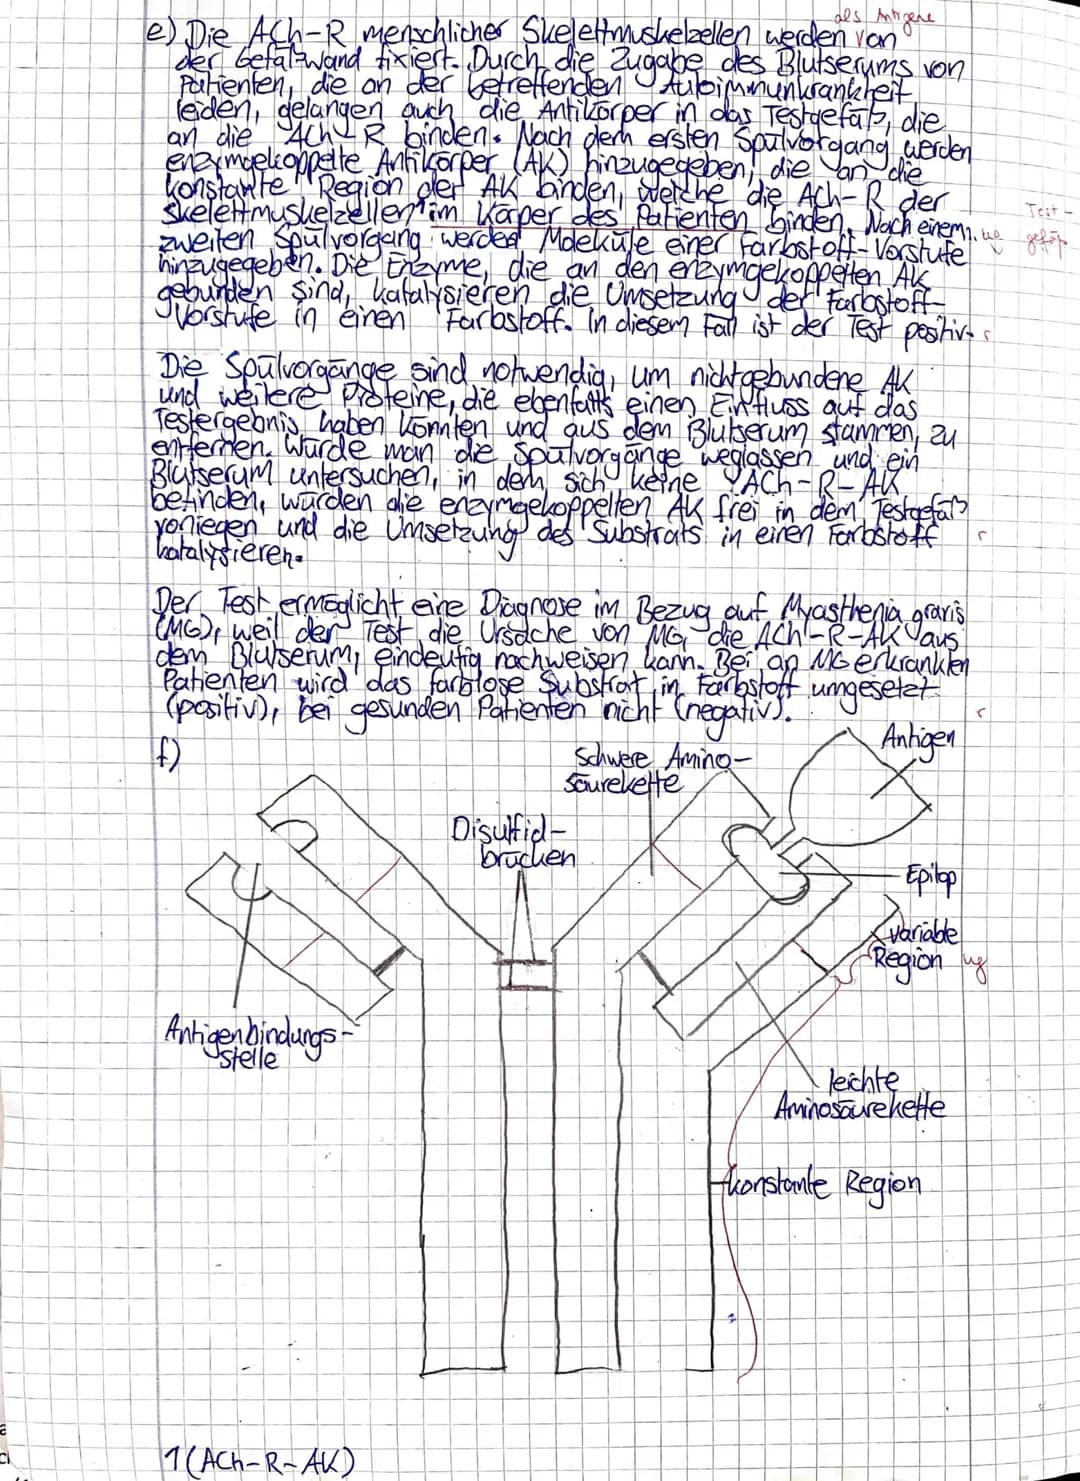 als Antigene
e) Die ACh-R menschlicher Skelettmuskelzellen werden von
der Gefäßwand fixiert. Durch die Zugabe des Blutserums von
Patienten, die an der betreffenden Autoimmunkrankheit
leiden, gelangen auch die Antikörper in das Testgefäß, die
an die ACh-R binden. Nach dem ersten Spülvorgang werden
enzymgekoppelte Antikörper (AK) hinzugegeben, die an die
konstante Region der AK binden, welche die ACh-R der
Skelettmuskelzellen¹ im Körper des Patienten binden. Nach einem
Test-
gefäß
zweiten Spülvorgang werden Moleküle einer Farbstoff-Vorstufe
hinzugegeben. Die Enzyme, die an den enzymgekoppelten AK
gebunden sind, katalysieren die Umsetzung der Farbstoff-
Vorstufe in einen Farbstoff. In diesem Fall ist der Test positiv. r
Die Spülvorgänge sind notwendig, um nichtgebundene AK
und weitere Proteine, die ebenfalls einen Einfluss auf das
Testergebnis haben könnten und aus dem Blutserum stammen, zu
entfernen. Würde man die Spülvorgänge weglassen und ein
Blutserum untersuchen, in dem sich keine ACh-R-AK
befinden, würden die enzymgekoppelten AK frei in dem Testgefäß
vorliegen und die Umsetzung des Substrats in einen Farbstoff r
katalysieren.
Der Test ermöglicht eine Diagnose im Bezug auf Myasthenia gravis
(MG), weil der Test die Ursache von MG, die ACh-R-AK aus
dem Blutserum, eindeutig nachweisen kann. Bei an MG erkrankten
Patienten wird das farblose Substrat in Farbstoff umgesetzt
(positiv), bei gesunden Patienten nicht (negativ). r
f)
Antigen
Schwere Amino-
säurekette
Disulfid-
brücken
Epitop
variable
Region ug
Antigenbindungs-
stelle
leichte
Aminosäurekette
konstante Region
1 (ACh-R-AK)